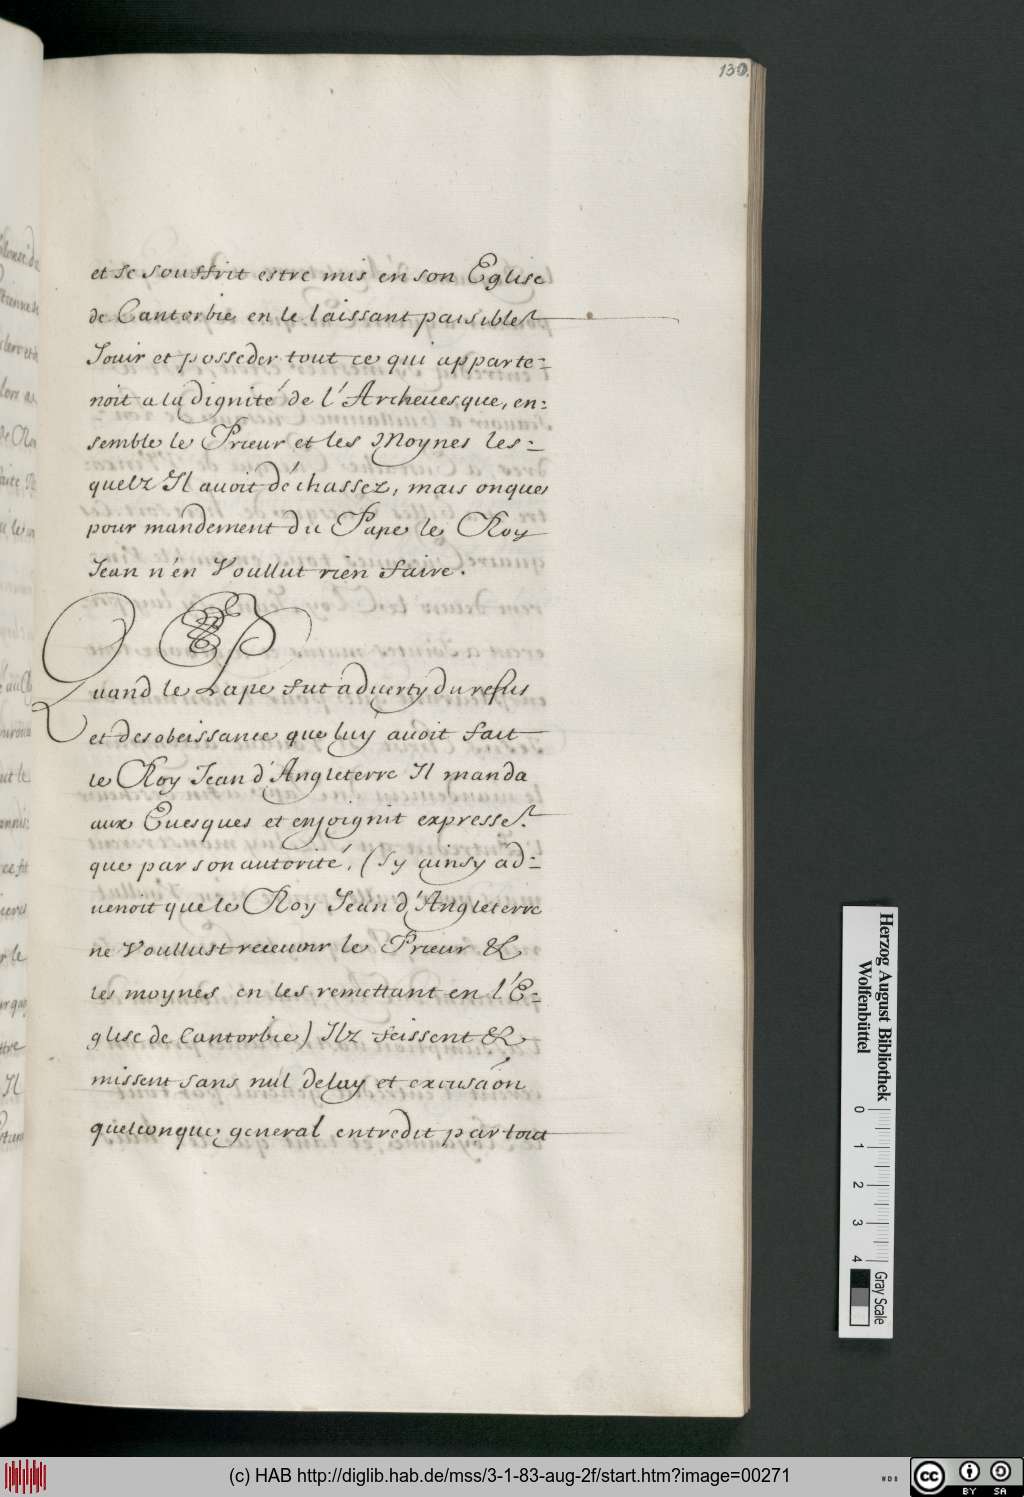 130.
et se souffrit estre mis en son Eglise
de Cantorbie en le laissant paisiblet
Jouir et posseder tout ce qui apparte=
noit a la dignité de l'Archeuesque, en=
semble le Prieur et les Moynes les=
quelz Il auoit déchassez, mais onques
pour mandement du Pape le Roy
Jean n'en Voullut rien faire.
Quand le Pape fut aduerty du refus
et desobeissance que luy auoit fait
le Roy Jean d'Angleterre Il manda
aux Euesques et enjoignit expresset
que par son autorité, (sy ainsy ad=
uenoit que le Roy Jean d'Angleterre
ne Voullust receuoir le Prieur &
les moynes en les remettant en l'E=
glise de Cantorbie) Ilz feissent &
missent sans nul delay et excusaon
quelconque general entredit par tout
Herzog August Bibliothek
Wolfenbüttel
0 1 2 3 4
Gray Scale
(c) HAB http://diglib.hab.de/mss/3-1-83-aug-2f/start.htm?image=00271
cc BY SA